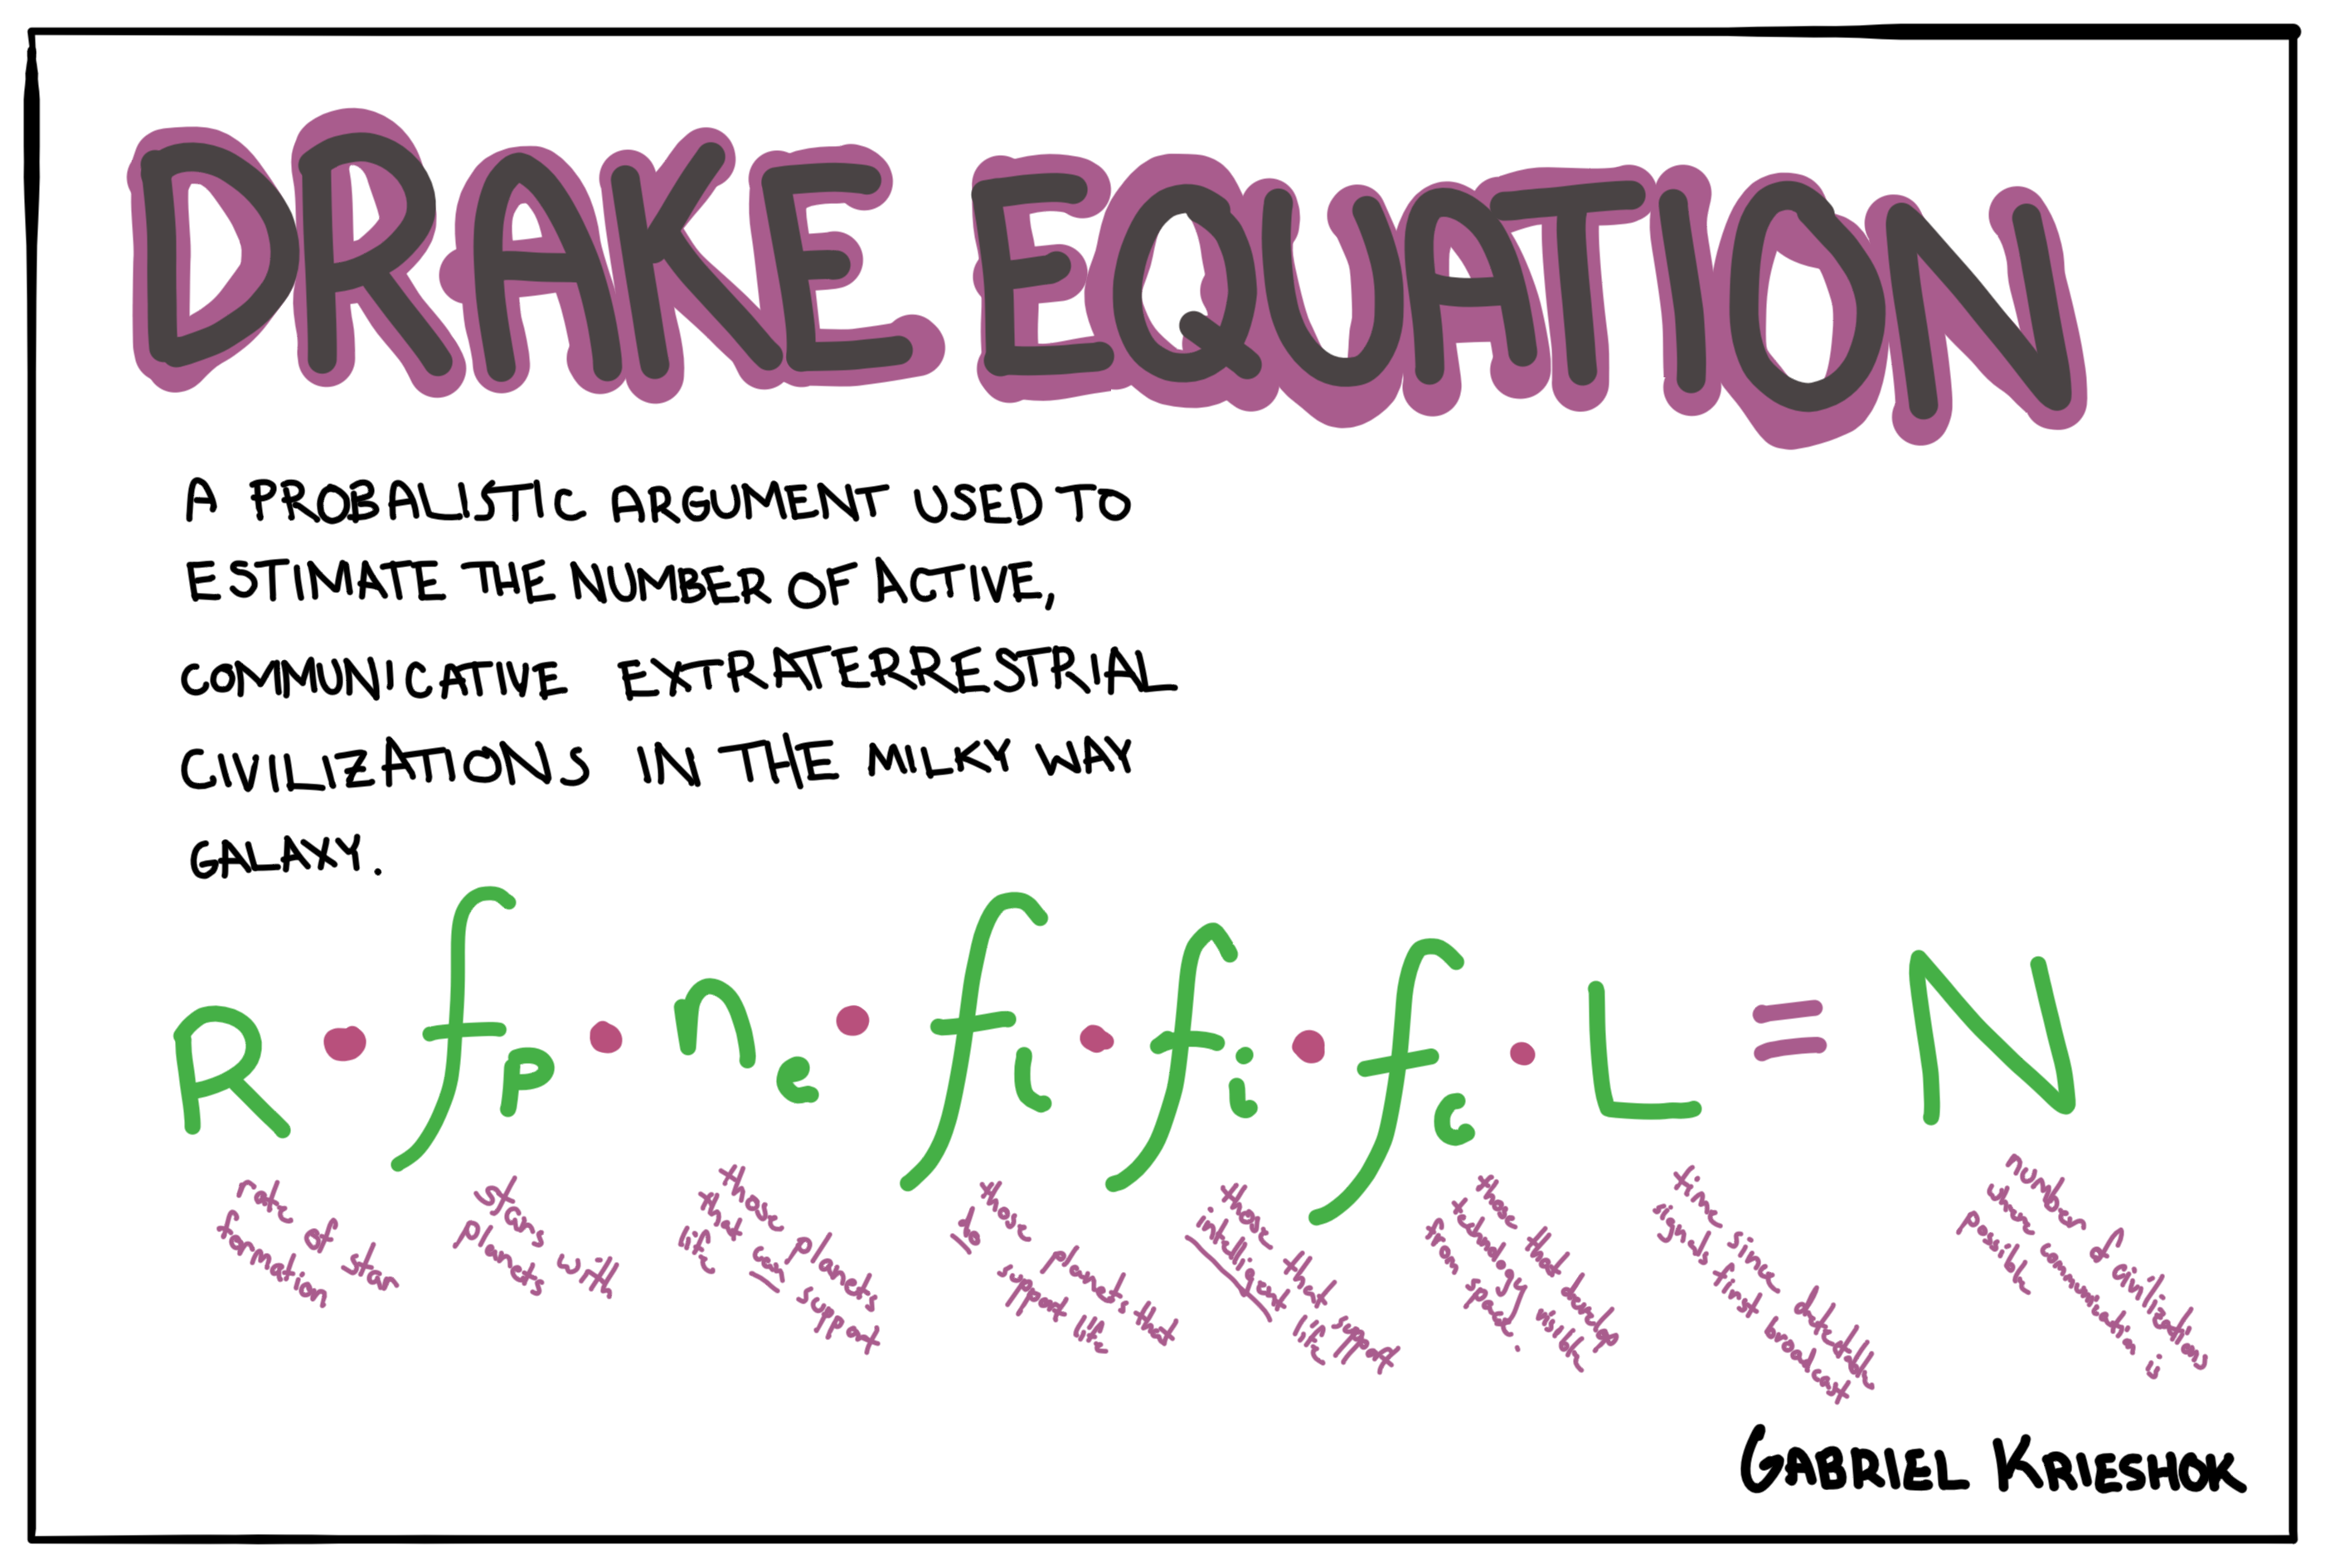 DRAKE EQUATION
A PROBALISTIC ARGUMENT USED TO
ESTIMATE THE NUMBER OF ACTIVE,
COMMUNICATIVE EXTRATERRESTRIAL
CIVILIZATIONS IN THE MILKY WAY
GALAXY.
R · fp · ne · fl · fi · fc · L = N
rate of star
formation
stars with
planets
those planets
that can support
life
those planets that
do support life
those that support
intelligent life
those that develop
technology visible
from space.
time since detectable
signals first broadcast
number of civilizations
where communication is
possible
GABRIEL KRIESHOK